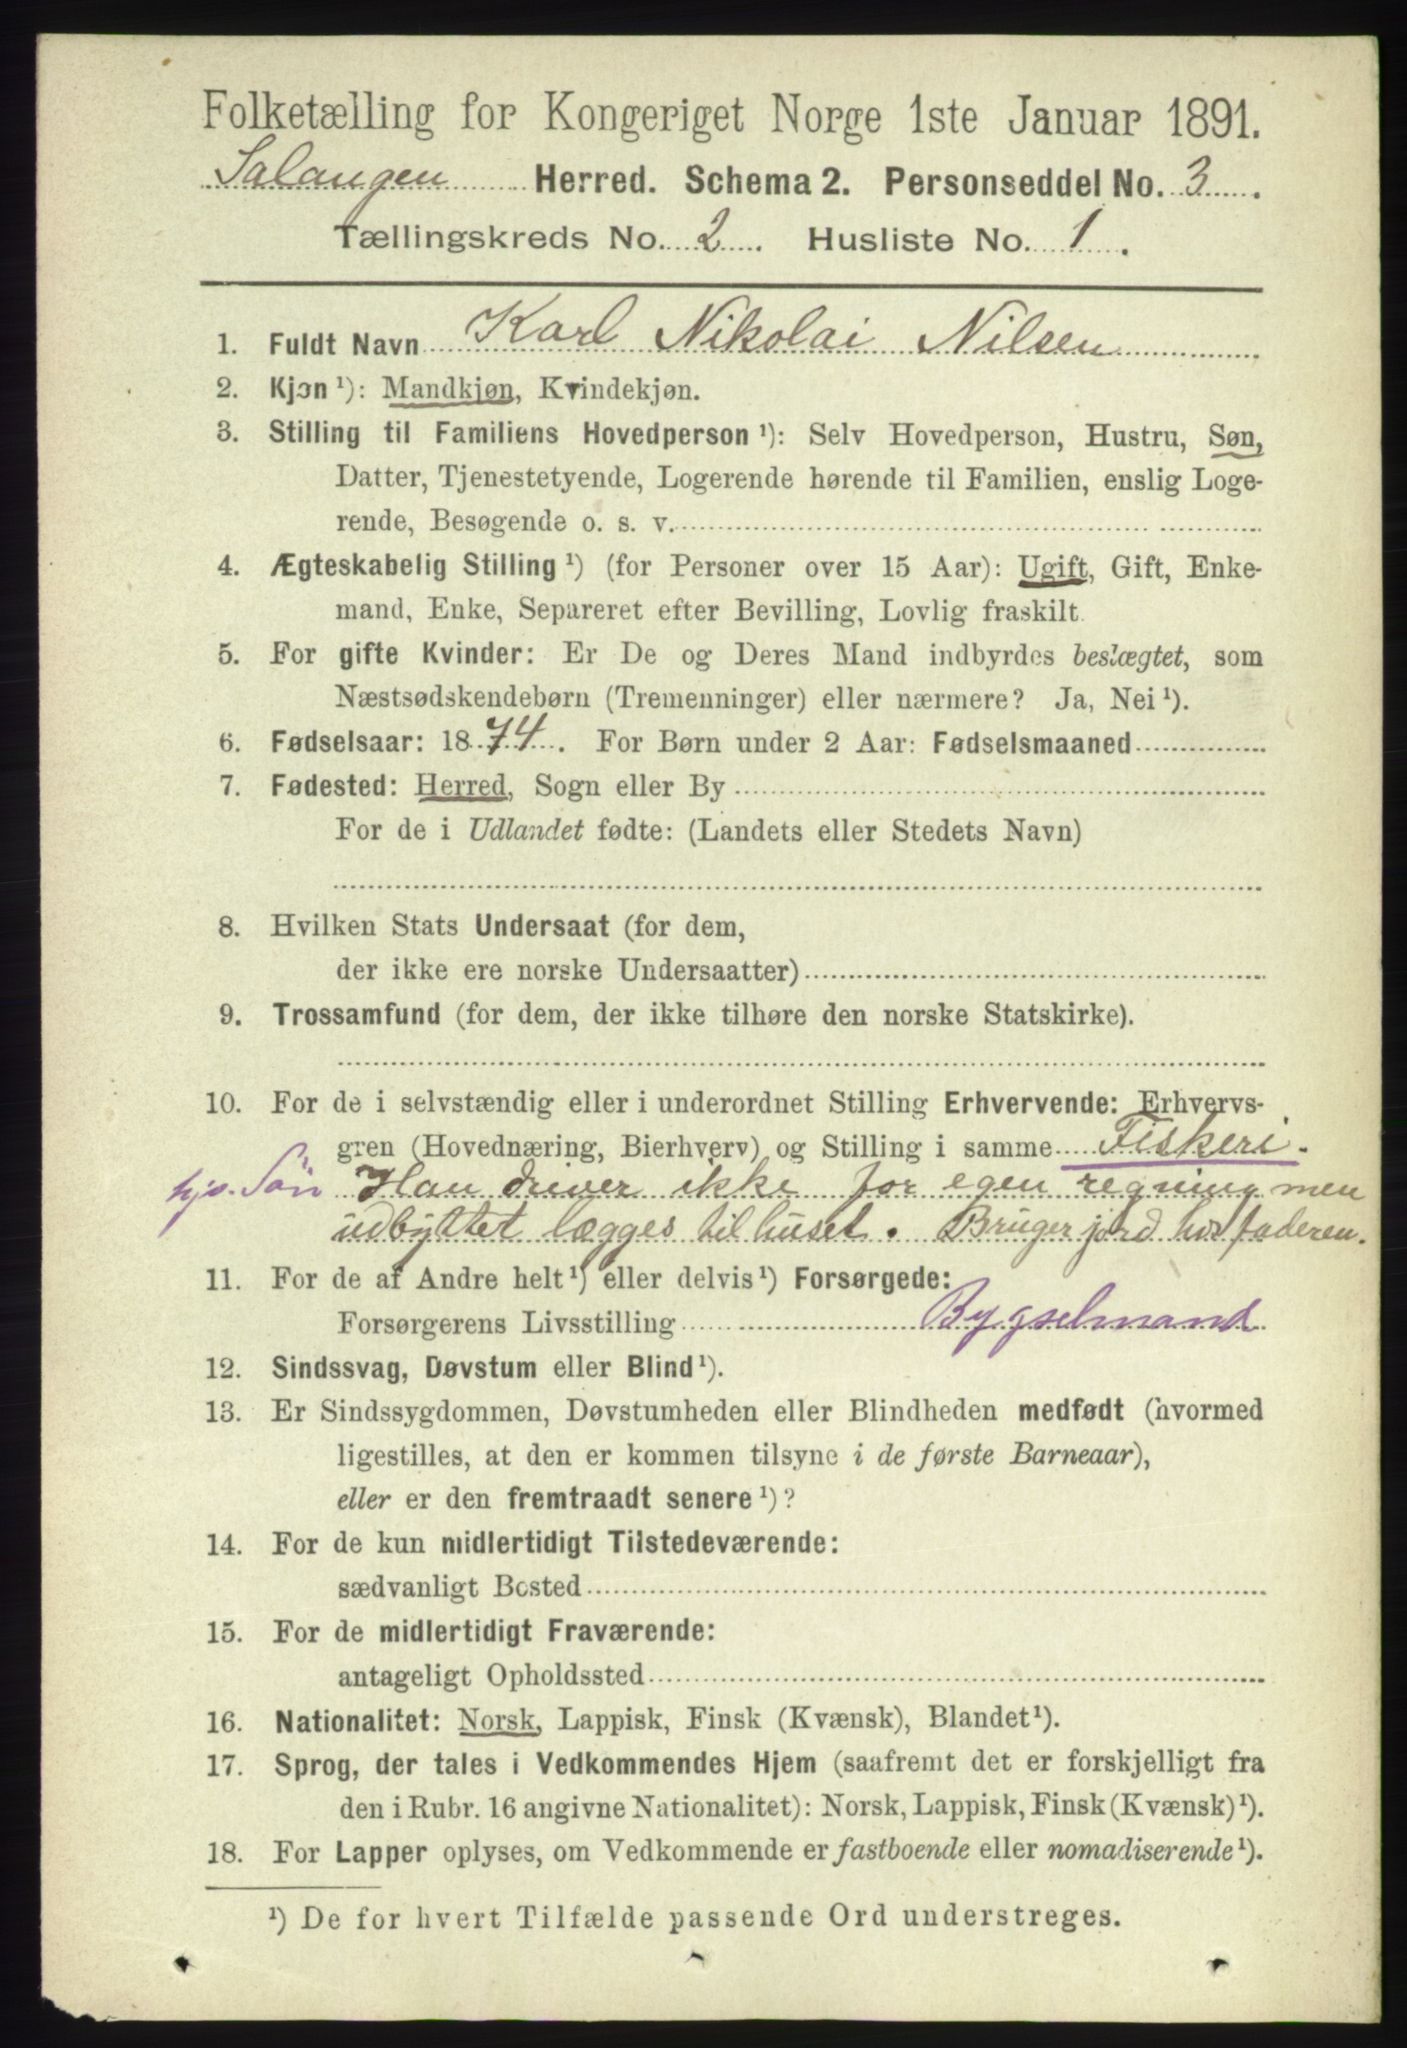 Folketælling for Kongeriget Norge 1ste Januar 1891.
Salangen Herred. Schema 2. Personseddel No. 3.
Tællingskreds No. 2. Husliste No. 1.
1. Fuldt Navn Karl Nikolai Nilsen
2. Kjøn ¹): Mandkjøn, Kvindekjøn.
3. Stilling til Familiens Hovedperson ¹): Selv Hovedperson, Hustru, Søn,
Datter, Tjenestetyende, Logerende hørende til Familien, enslig Loge-
rende, Besøgende o. s. v.
4. Ægteskabelig Stilling ¹) (for Personer over 15 Aar): Ugift, Gift, Enke-
mand, Enke, Separeret efter Bevilling, Lovlig fraskilt.
5. For gifte Kvinder: Er De og Deres Mand indbyrdes beslægtet, som
Næstsødskendebørn (Tremenninger) eller nærmere? Ja, Nei ¹).
6. Fødselsaar: 1874. For Børn under 2 Aar: Fødselsmaaned
7. Fødested: Herred, Sogn eller By
For de i Udlandet fødte: (Landets eller Stedets Navn)
8. Hvilken Stats Undersaat (for dem,
der ikke ere norske Undersaatter)
9. Trossamfund (for dem, der ikke tilhøre den norske Statskirke).
10. For de i selvstændig eller i underordnet Stilling Erhvervende: Erhvervs-
gren (Hovednæring, Bierhverv) og Stilling i samme Fiskeri.
hjs. Søn Han driver ikke for egen regning men
udbyttet lægges til huset. Bruger jord hos faderen.
11. For de af Andre helt ¹) eller delvis ¹) Forsørgede:
Forsørgerens Livsstilling Bygselmand
12. Sindssvag, Døvstum eller Blind ¹).
13. Er Sindssygdommen, Døvstumheden eller Blindheden medfødt (hvormed
ligestilles, at den er kommen tilsyne i de første Barneaar),
eller er den fremtraadt senere ¹)?
14. For de kun midlertidigt Tilstedeværende:
sædvanligt Bosted
15. For de midlertidigt Fraværende:
antageligt Opholdssted
16. Nationalitet: Norsk, Lappisk, Finsk (Kvænsk), Blandet ¹).
17. Sprog, der tales i Vedkommendes Hjem (saafremt det er forskjelligt fra
den i Rubr. 16 angivne Nationalitet): Norsk, Lappisk, Finsk (Kvænsk) ¹).
18. For Lapper oplyses, om Vedkommende er fastboende eller nomadiserende ¹).
¹) De for hvert Tilfælde passende Ord understreges.